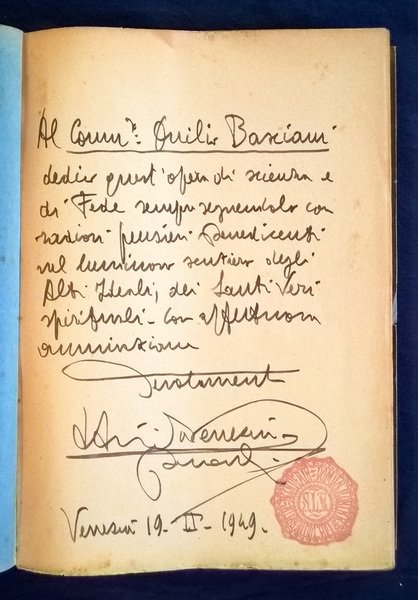 Al Comm.re Duilio Basciani
dedico quest'opera di scienza e
di Fede sempre seguendola con
radiosi pensieri benedicenti
nel luminoso sentiero degli
Alti Ideali, dei Santi Veri
spirituali - con affettuosa
ammirazione
Devotamente
19-II-1949.